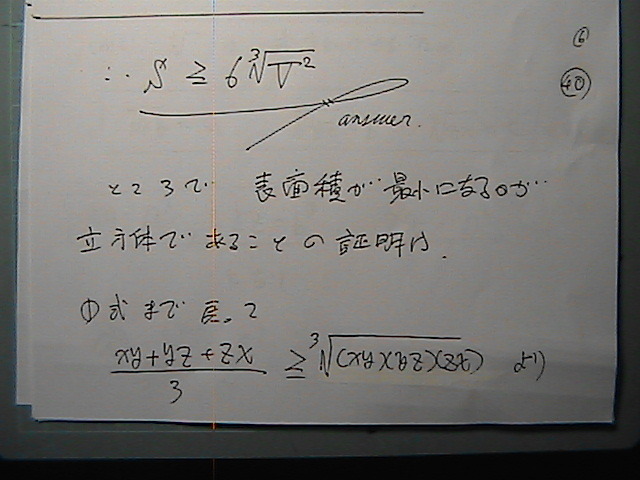 ⑥
㊵
∴ S ≧ 6∛V²
answer.
ところで 表面積が 最小になるのが
立方体であることの証明は.
①式まで戻って
(xy+yz+zx)/3 ≧ ∛(xy)(yz)(zx) より